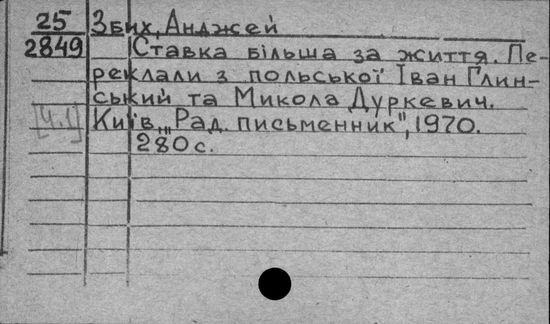 25
2849
[ч.1]
Збих, Анджей
Ставка більша за життя. Пе-
реклали з польської Іван Глин-
ський та Микола Дуркевич.
Київ, „Рад. письменник", 1970.
280 с.